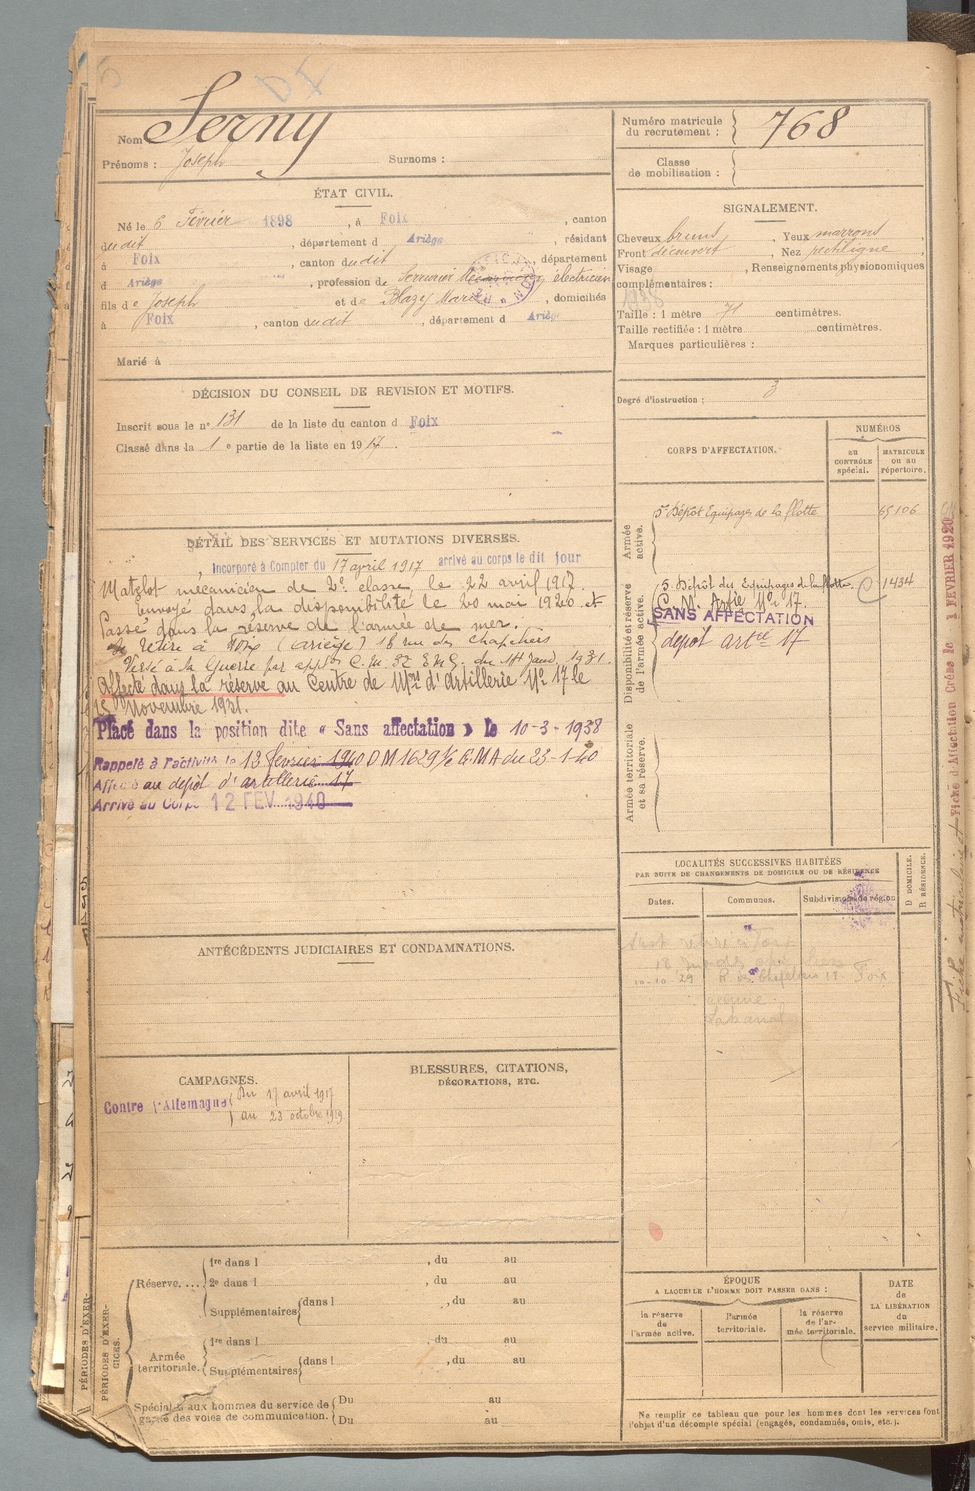 Nom Serny
Prénoms : Joseph Surnoms :
Numéro matricule du recrutement : 768
Classe de mobilisation :
ÉTAT CIVIL.
Né le 6 Février 1898, à Foix, canton
dudit, département d Ariège, résidant
à Foix, canton dudit, département
d Ariège, profession de Serrurier électricien
fils de Joseph et de Blazy Marie, domiciliés
à Foix, canton dudit, département d Ariège
Marié à
SIGNALEMENT.
Cheveux bruns, Yeux marrons,
Front découvert, Nez rectiligne,
Visage, Renseignements physionomiques
complémentaires :
1938
Taille : 1 mètre 71 centimètres.
Taille rectifiée : 1 mètre centimètres.
Marques particulières :
Degré d'instruction : 3
DÉCISION DU CONSEIL DE REVISION ET MOTIFS.
Inscrit sous le n° 131 de la liste du canton d Foix
Classé dans la 1 e partie de la liste en 1917.
DÉTAIL DES SERVICES ET MUTATIONS DIVERSES.
Incorporé à Compter du 17 avril 1917 arrivé au corps le dit jour
Matelot mécanicien de 2e classe, le 22 avril 1917.
Envoyé dans la disponibilité le 20 mai 1920 et
Passé dans la réserve de l'armée de mer.
Se retire à Foix (Ariège) 18 rue des chapeliers
Versé à la Guerre par appon C.M. 32 E.M.G. du 14 janv. 1931.
Affecté dans la réserve au Centre de Mon d'Artillerie No 17 le
15 Novembre 1931.
Placé dans la position dite « Sans affectation » le 10-3-1938
Rappelé à l'activité le 12 février 1940 DM 1629 EMA du 23-1-40
Affecté au dépôt d'artillerie 17
Arrivé au Corps 12 FEV 1940
CORPS D'AFFECTATION.
NUMÉROS
au CONTRÔLE spécial.
MATRICULE ou au répertoire.
Armée active.
5e Dépôt Equipages de la flotte 65106
Disponibilité et réserve de l'armée active.
5 Dépôt des Equipages de la flotte C 1434
C. M. Artie No 17.
SANS AFFECTATION
dépôt artie 17
Armée territoriale et sa réserve.
LOCALITÉS SUCCESSIVES HABITÉES
PAR SUITE DE CHANGEMENTS DE DOMICILE OU DE RÉSIDENCE
Dates.
Communes.
Subdivisions de région
D DOMICILE.
R RÉSIDENCE.
10-10-29 18 Foix
ANTÉCÉDENTS JUDICIAIRES ET CONDAMNATIONS.
CAMPAGNES.
Contre l'Allemagne Du 17 avril 1917
au 23 octobre 1919
BLESSURES, CITATIONS,
DÉCORATIONS, ETC.
PÉRIODES D'EXERCICES.
Réserve.... 1re dans l , du au
2e dans l , du au
Supplémentaires dans l , du au
Armée territoriale. 1re dans l , du au
Supplémentaires dans l , du au
Spécial aux hommes du service de garde des voies de communication. Du au
Du au
ÉPOQUE
A LAQUELLE L'HOMME DOIT PASSER DANS :
la réserve de l'armée active.
l'armée territoriale.
la réserve de l'armée territoriale.
DATE
de
LA LIBÉRATION
du
service militaire.
Ne remplir ce tableau que pour les hommes dont les services font
l'objet d'un décompte spécial (engagés, condamnés, omis, etc.).
PÉRIODES D'EXER-